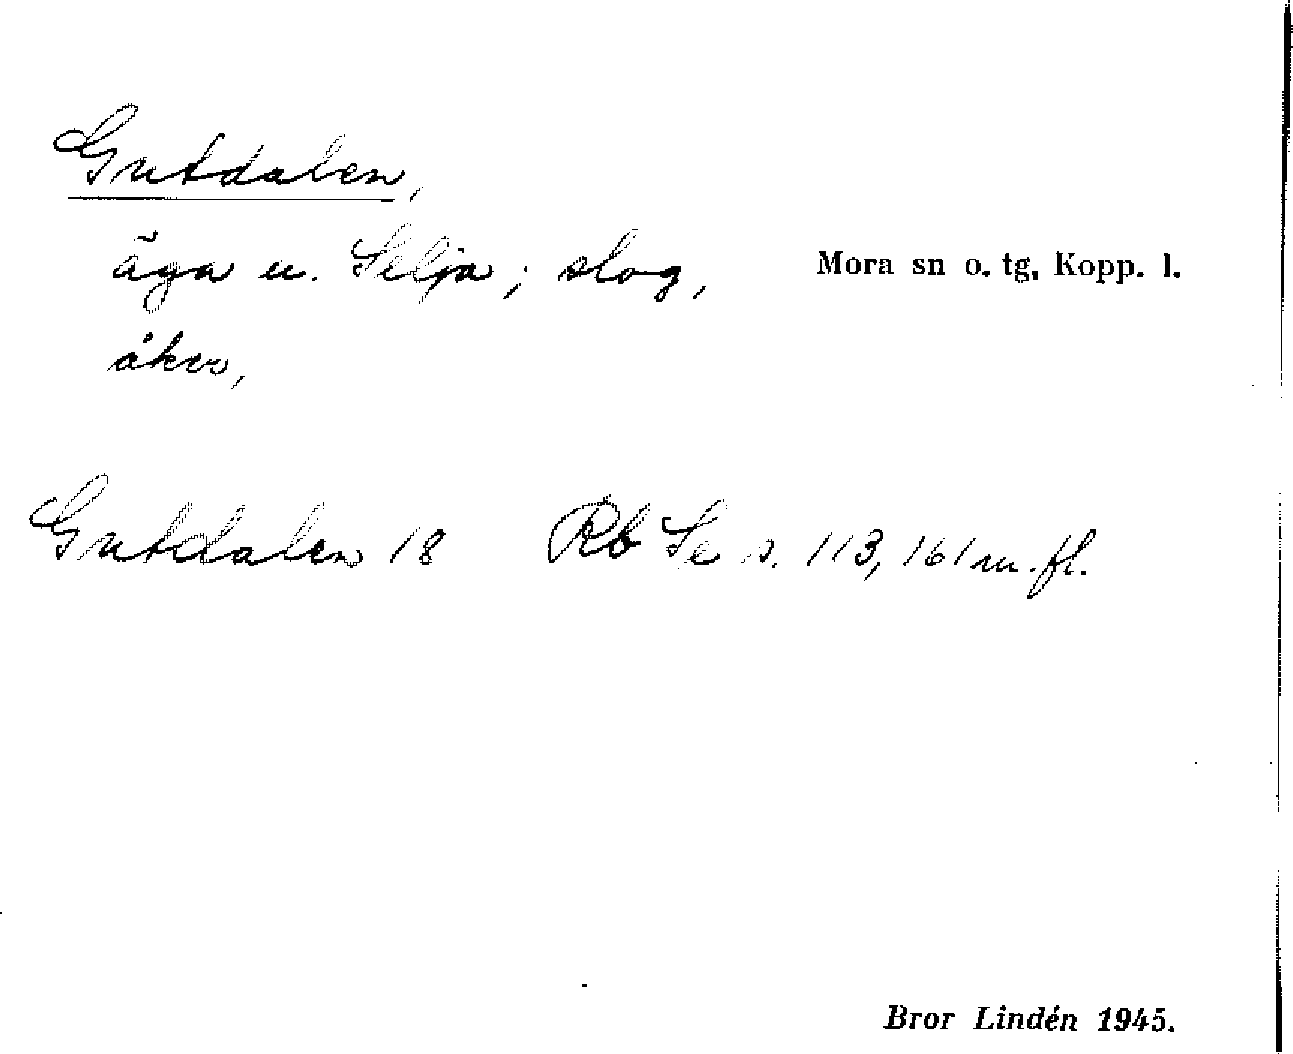 Gutdalen,
äga u. Selja; slog,
Mora sn o. tg. Kopp. l.
åker,
Gutdalen 18 Rb Se s. 113, 161 m. fl.
Bror Lindén 1945.